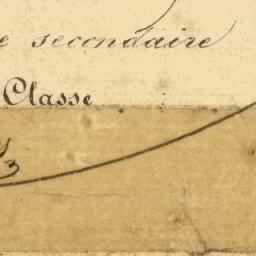 e secondaire
Classe
3